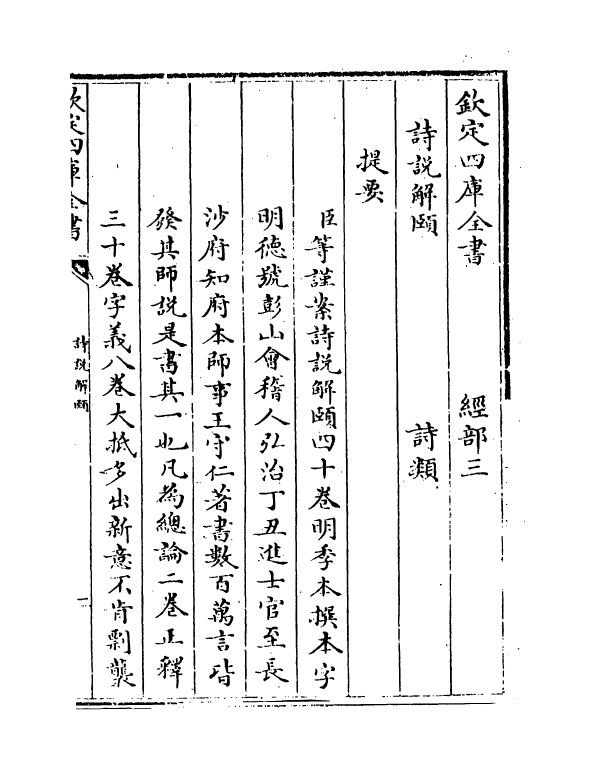 欽定四庫全書　　　經部三
詩說解頤　　　詩類
提要
臣等謹案詩說解頤四十卷明季本撰本字
明德號彭山會稽人弘治丁丑進士官至長
沙府知府本師事王守仁著書數百萬言皆
發其師說是書其一也凡為總論二卷正釋
三十卷字義八卷大抵多出新意不肯剽襲
欽定四庫全書
詩說解頤
一